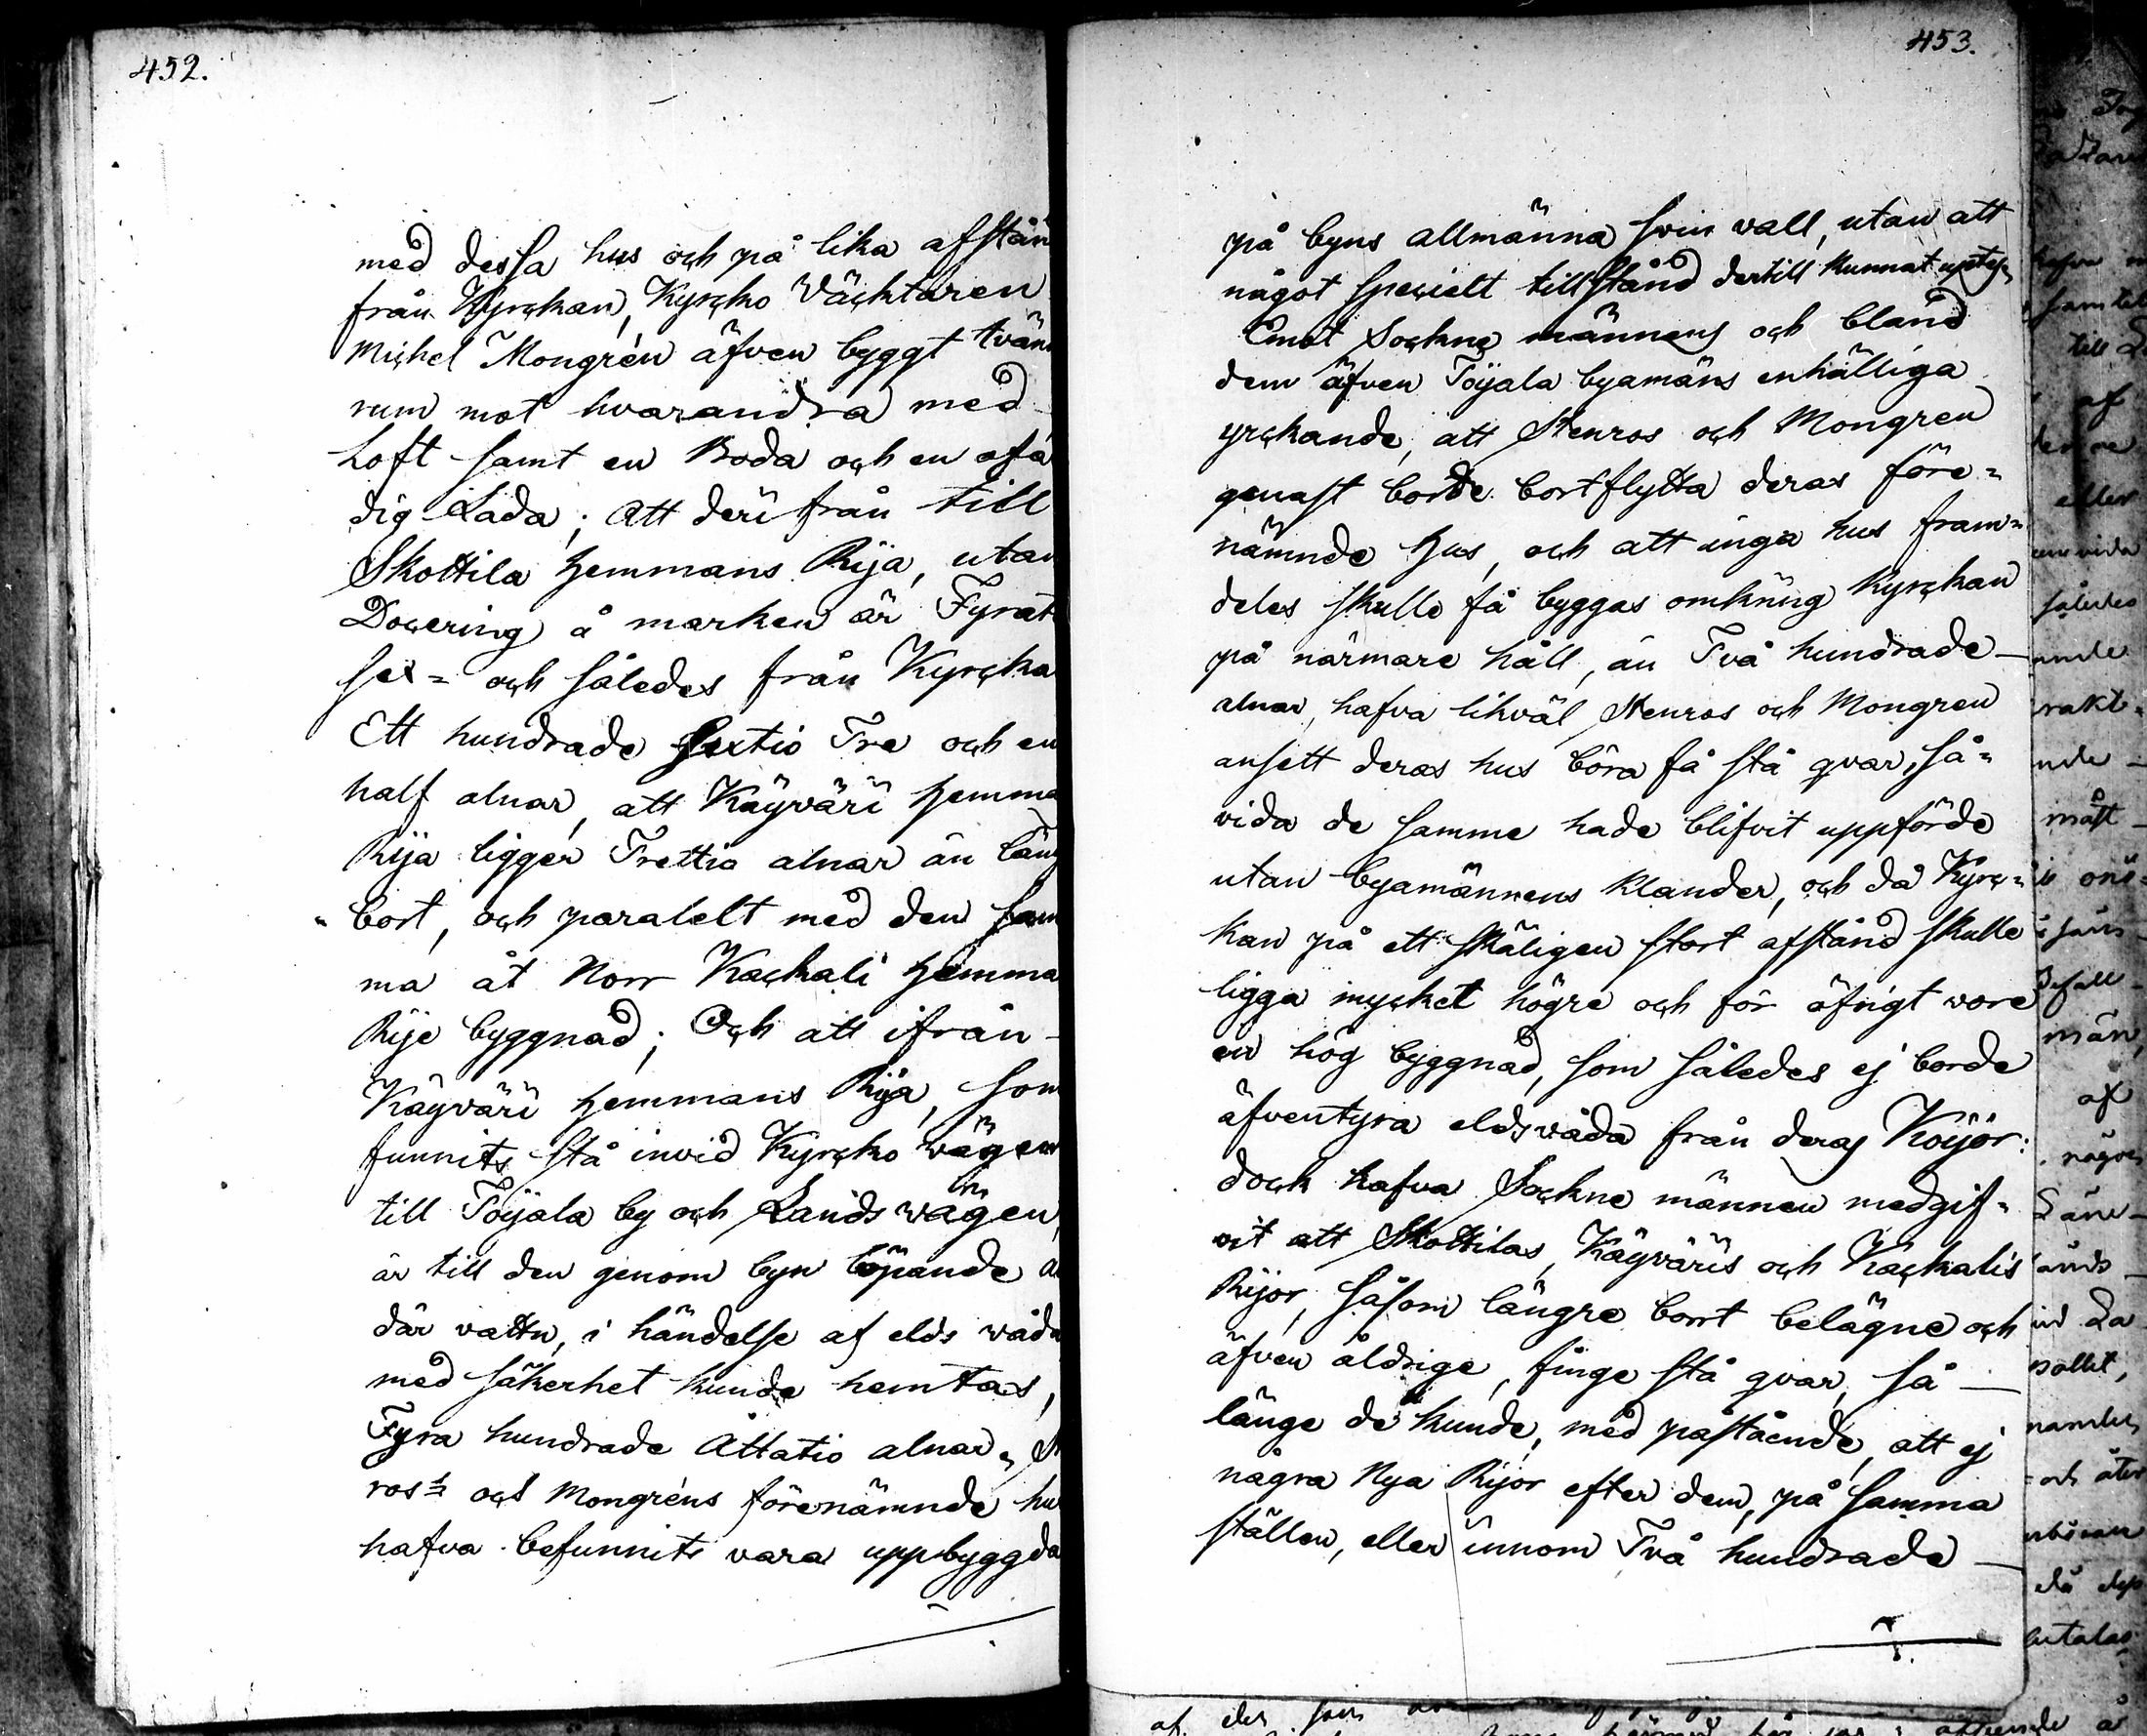 452.
med dessa hus och på lika afstån
från Kyrckan, Kyrcko Väcktaren
Michel Mongrén äfven byggt tvän
rum mot hvarandra med
Loft samt en Boda och en afå
dig Lada; Att derifrån till
Skottila hemmans Rija, utan
Docering å marken är Fyrati
sex= och således från Kyrcka
Ett hundrade Sextio Tre och en
half alnar, att Käyväri hemma
Rija ligger Trettio alnar än läng
bort, och paralelt med den sam
ma åt Norr Kackali hemma
Rije byggnad; Och att ifrån
Käyväri hemmans Rija, som
funnits stå invid Kyrcko vägen
till Toijala by och Landsvägen,
är till den genom byn löpande å
där vattn, i händelse af elds våda
med säkerhet kunde hemtas,
Fyra hundrade Åttatio alnar,
ros's och Mongréns förenämnde hu
hafva befunnits vara uppbyggda
453.
på byns allmänna svin vall, utan att
något specielt tillstånd dertill kunnat uptes,
Emot Sockne männens och bland
dem äfven Toijala byamäns enhälliga
yrckande, att Stenros och Mongren
genast borde bortflytta deras före=
nämnde hus, och att inga hus fram=
deles skulle få byggas omkring Kyrckan
på närmare håll, än Två hundrade
alnar, hafva likväl Stenros och Mongren
ansett deras hus böra få stå qvar, så=
vida de samme hade blifvit uppförde
utan byamännens klander, och då Kyrc=
kan på ett skäligen stort afstånd skulle
ligga mycket högre och för öfrigt vore
en hög byggnad, som således ej borde
äfventyra eldsvåda från deras Koijor:
dock hafva Sockne männen medgif=
vit att Skottilas, Käyväris och Kackalis
Rijor, såsom längre bort belägne och
äfven åldrige, finge stå qvar, så
länge de kunde, med påstående, att ej
några Nya Rijor efter dem, på samma
ställen, eller innom Två hundrade